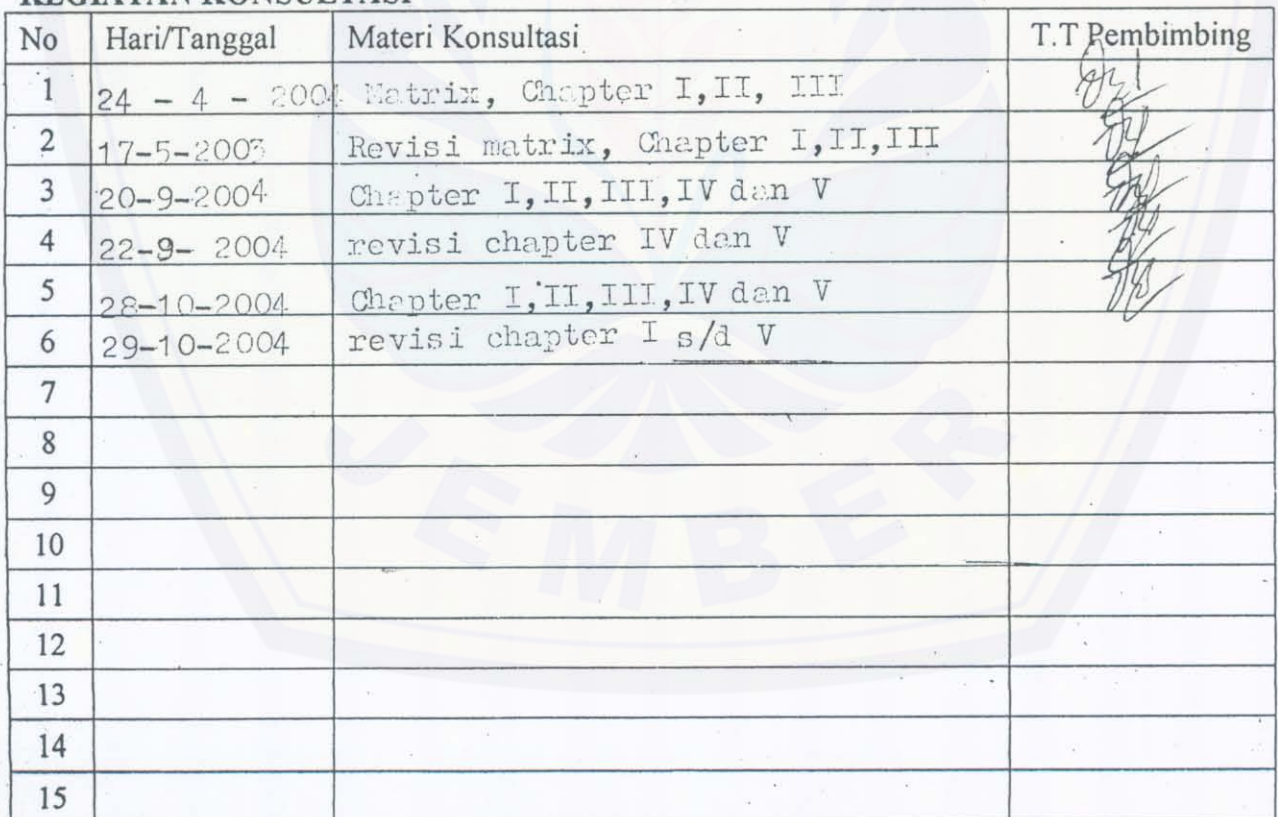 KEGIATAN KONSULTASI
No Hari/Tanggal Materi Konsultasi T.T Pembimbing
1 24 - 4 - 2004 Matrix, Chapter I,II, III
2 17-5-2003 Revisi matrix, Chapter I,II,III
3 20-9-2004 Chapter I,II,III,IV dan V
4 22-9- 2004 revisi chapter IV dan V
5 28-10-2004 Chapter I,II,III,IV dan V
6 29-10-2004 revisi chapter I s/d V
7
8
9
10
11
12
13
14
15
JEMBER